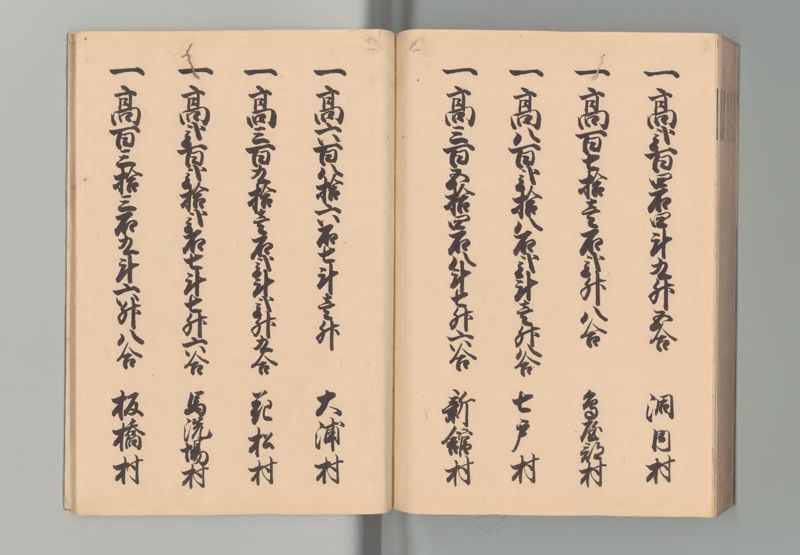 一高弐百四石四斗九升五合 洞内村
一高百七拾壱石弐升八合 鳥屋部村
一高八百弐拾八石弐斗壱升八合 七戸村
一高三百五拾四石八斗七升六合 新舘村
一高六百八拾六石七斗壱升 大浦村
一高三百九拾壱石弐斗弐升九合 花松村
一高弐百弐拾弐石七斗七升六合 馬洗場村
一高百三拾三石九斗六升八合 板橋村